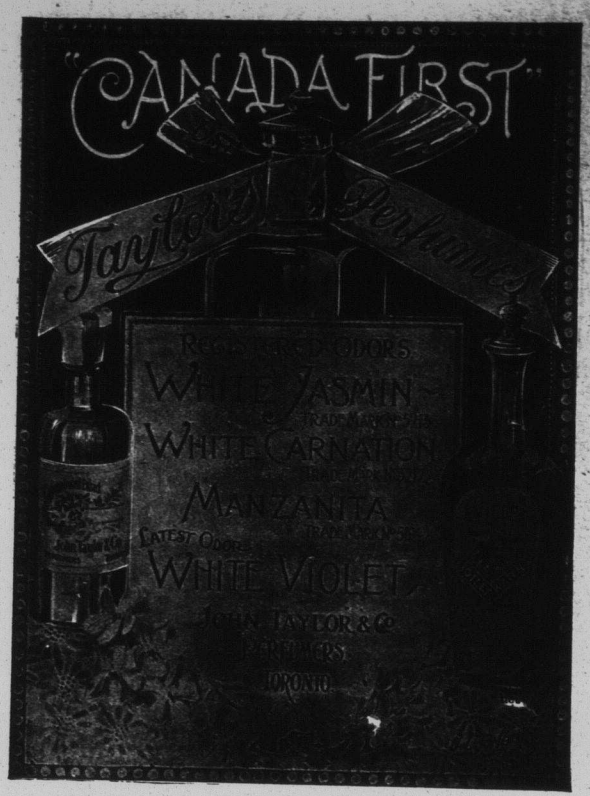 "CANADA FIRST"
Taylor's Perfumes
REGISTERED ODORS
WHITE JASMIN
TRADE MARK
WHITE CARNATION
TRADE MARK
MANZANITA
TRADE MARK
LATEST ODOR
WHITE VIOLET
JOHN TAYLOR & Co
PERFUMERS
TORONTO
John Taylor & Co